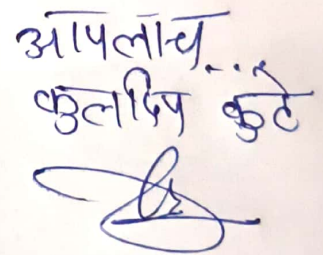 आपलाच...
कुलदिप कुटे